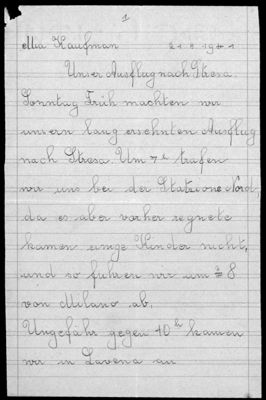 1
Mia Kaufman 21 8 1941
Unser Ausflug nach Stresa.
Sonntag Früh machten wir
unsern lang ersehnten Ausflug
nach Stresa. Um 7h trafen
wir uns bei der Statzione Nord,
da es aber vorher regnete
kamen einge Kinder nicht,
und so fuhren wir um 8
von Milano ab.
Ungefähr gegen 10h kamen
wir in Lavena an